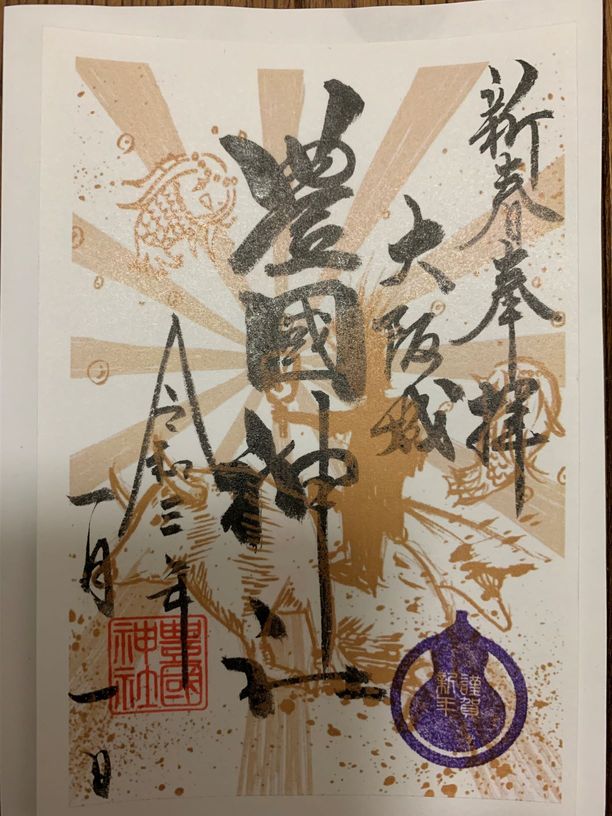 新春奉拝
大阪城
豊國神社
令和三年
一月一日
豊國
神社
謹賀
新年